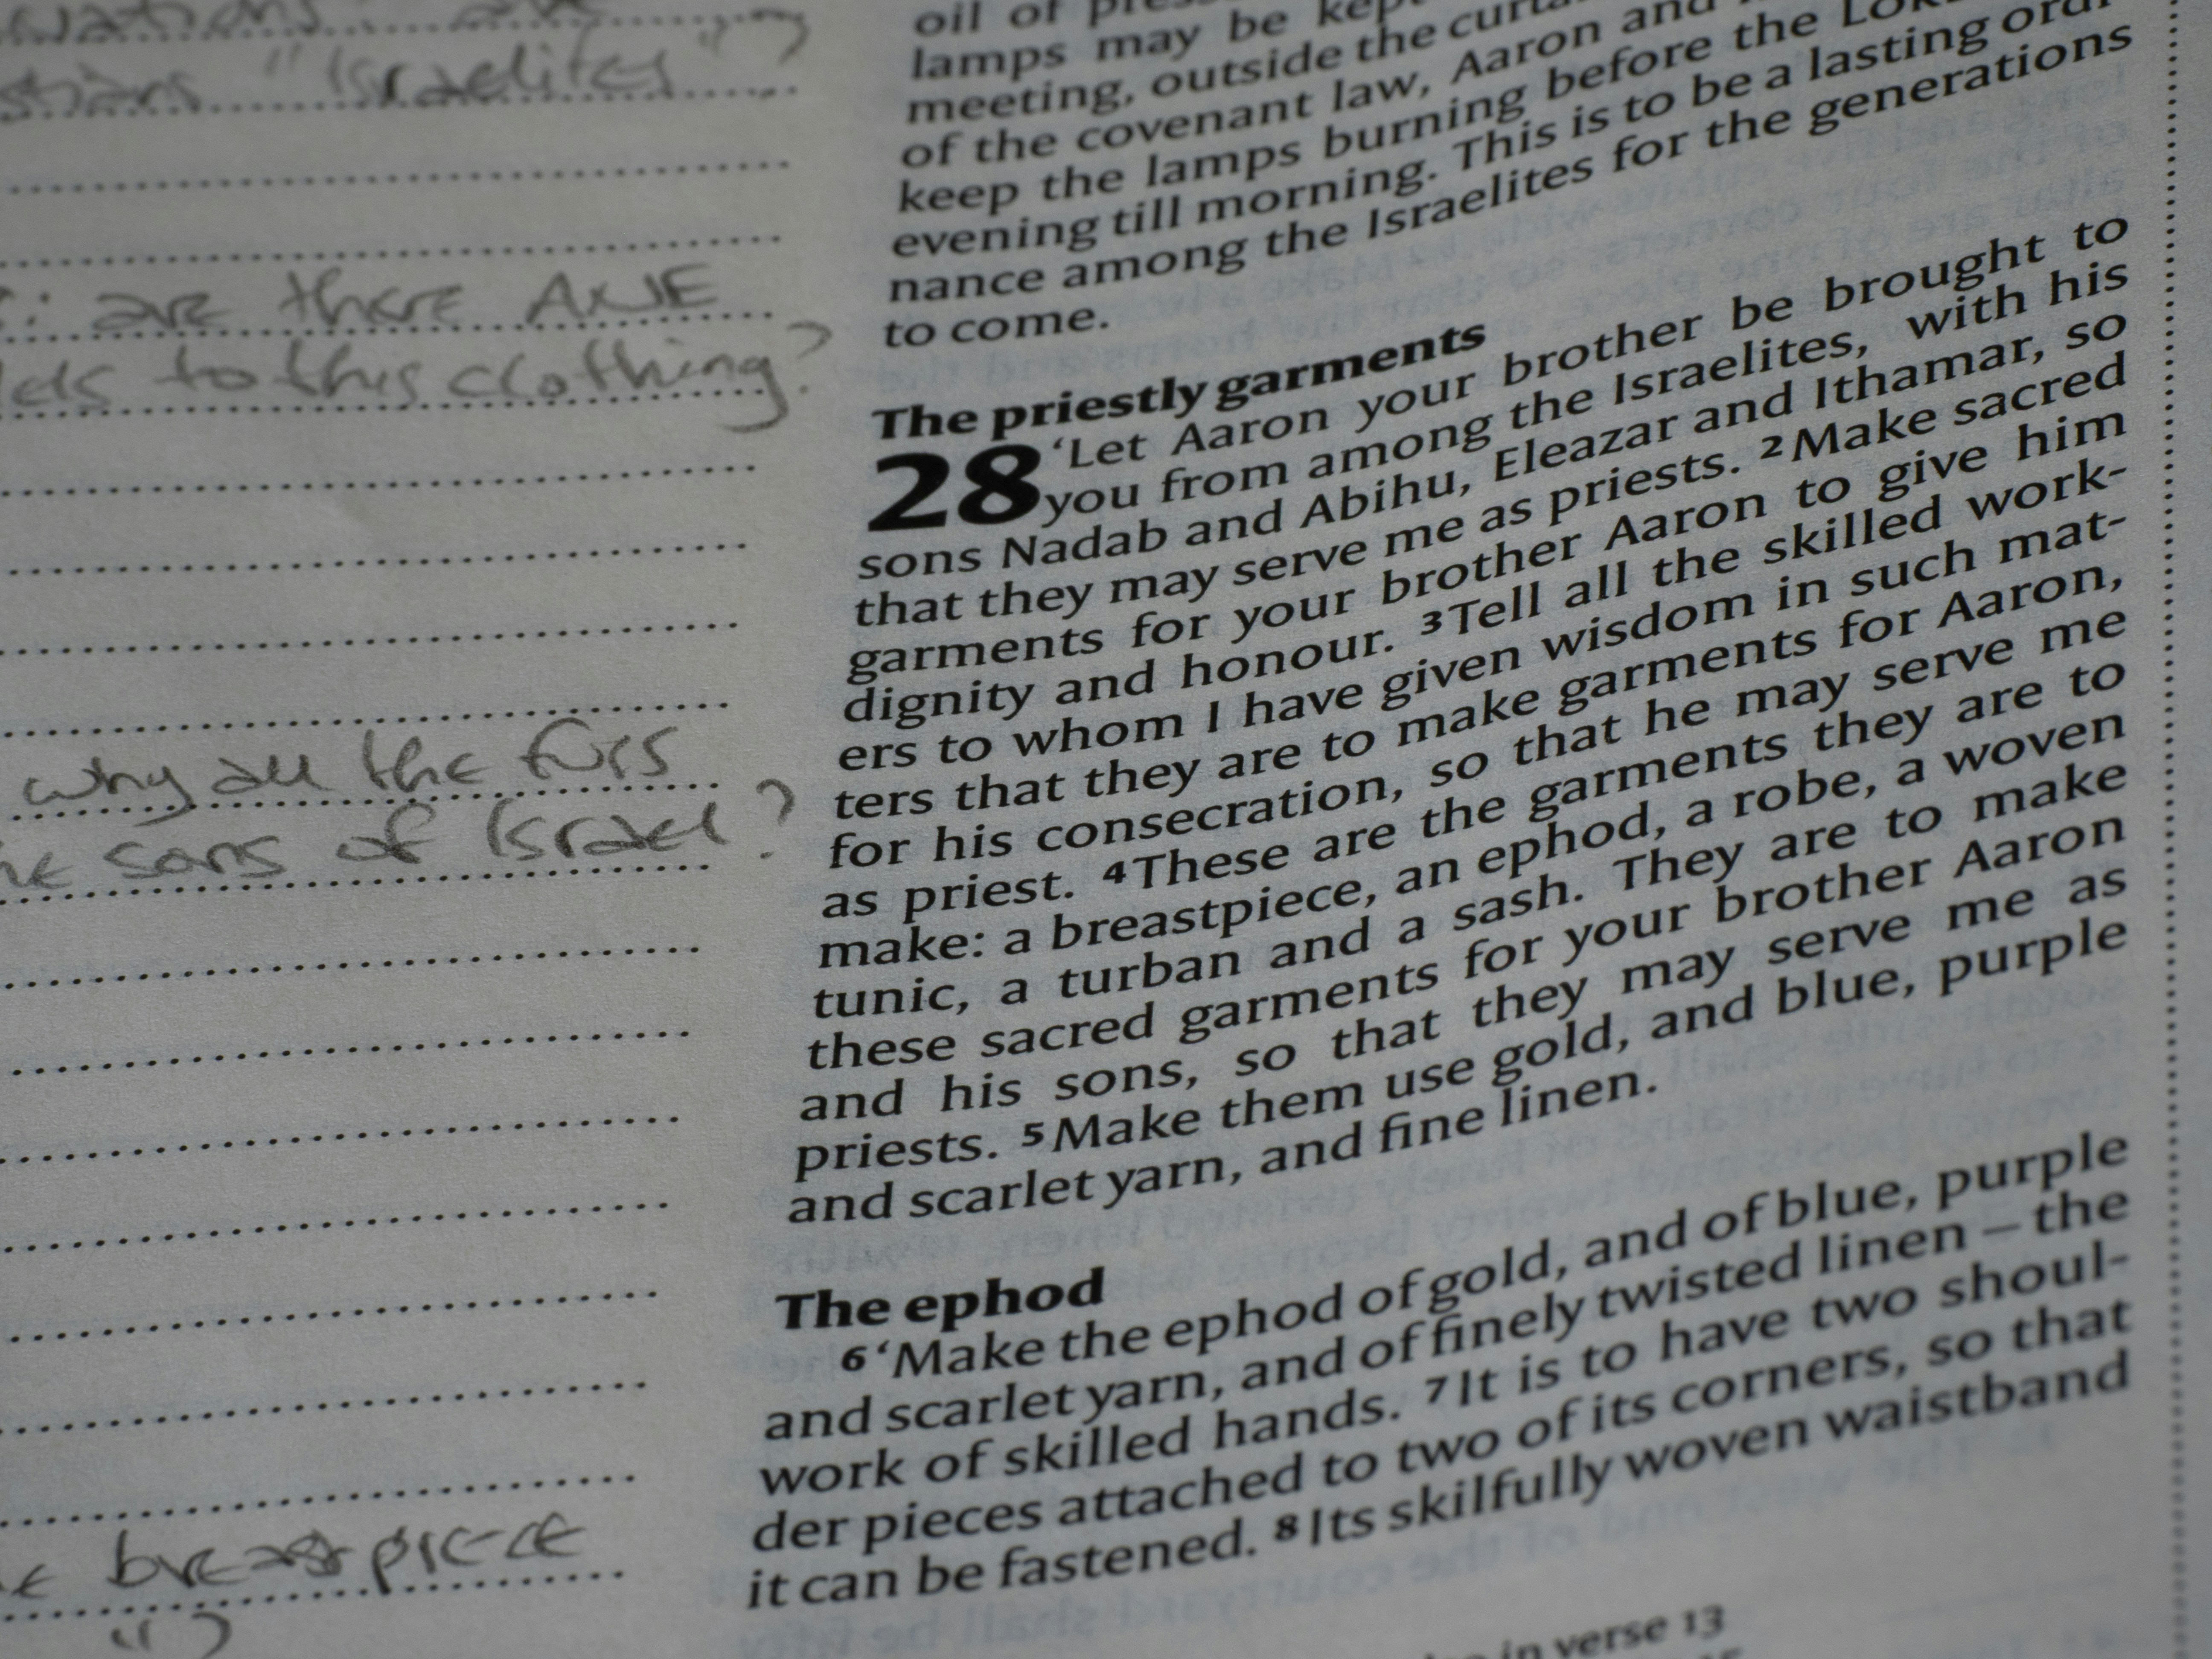 "Israelites"?
: are there ANE
to this clothing?
why all the furs
sons of Israel?
breastpiece
oil of
lamps may be kept
meeting, outside the
of the covenant law, Aaron and
keep the lamps burning before the LORD
evening till morning. This is to be a lasting ordi-
nance among the Israelites for the generations
to come.
The priestly garments
28 ‘Let Aaron your brother be brought to
you from among the Israelites, with his
sons Nadab and Abihu, Eleazar and Ithamar, so
that they may serve me as priests. 2 Make sacred
garments for your brother Aaron to give him
dignity and honour. 3 Tell all the skilled work-
ers to whom I have given wisdom in such mat-
ters that they are to make garments for Aaron,
for his consecration, so that he may serve me
as priest. 4 These are the garments they are to
make: a breastpiece, an ephod, a robe, a woven
tunic, a turban and a sash. They are to make
these sacred garments for your brother Aaron
and his sons, so that they may serve me as
priests. 5 Make them use gold, and blue, purple
and scarlet yarn, and fine linen.
The ephod
6 ‘Make the ephod of gold, and of blue, purple
and scarlet yarn, and of finely twisted linen – the
work of skilled hands. 7 It is to have two shoul-
der pieces attached to two of its corners, so that
it can be fastened. 8 Its skilfully woven waistband
in verse 13